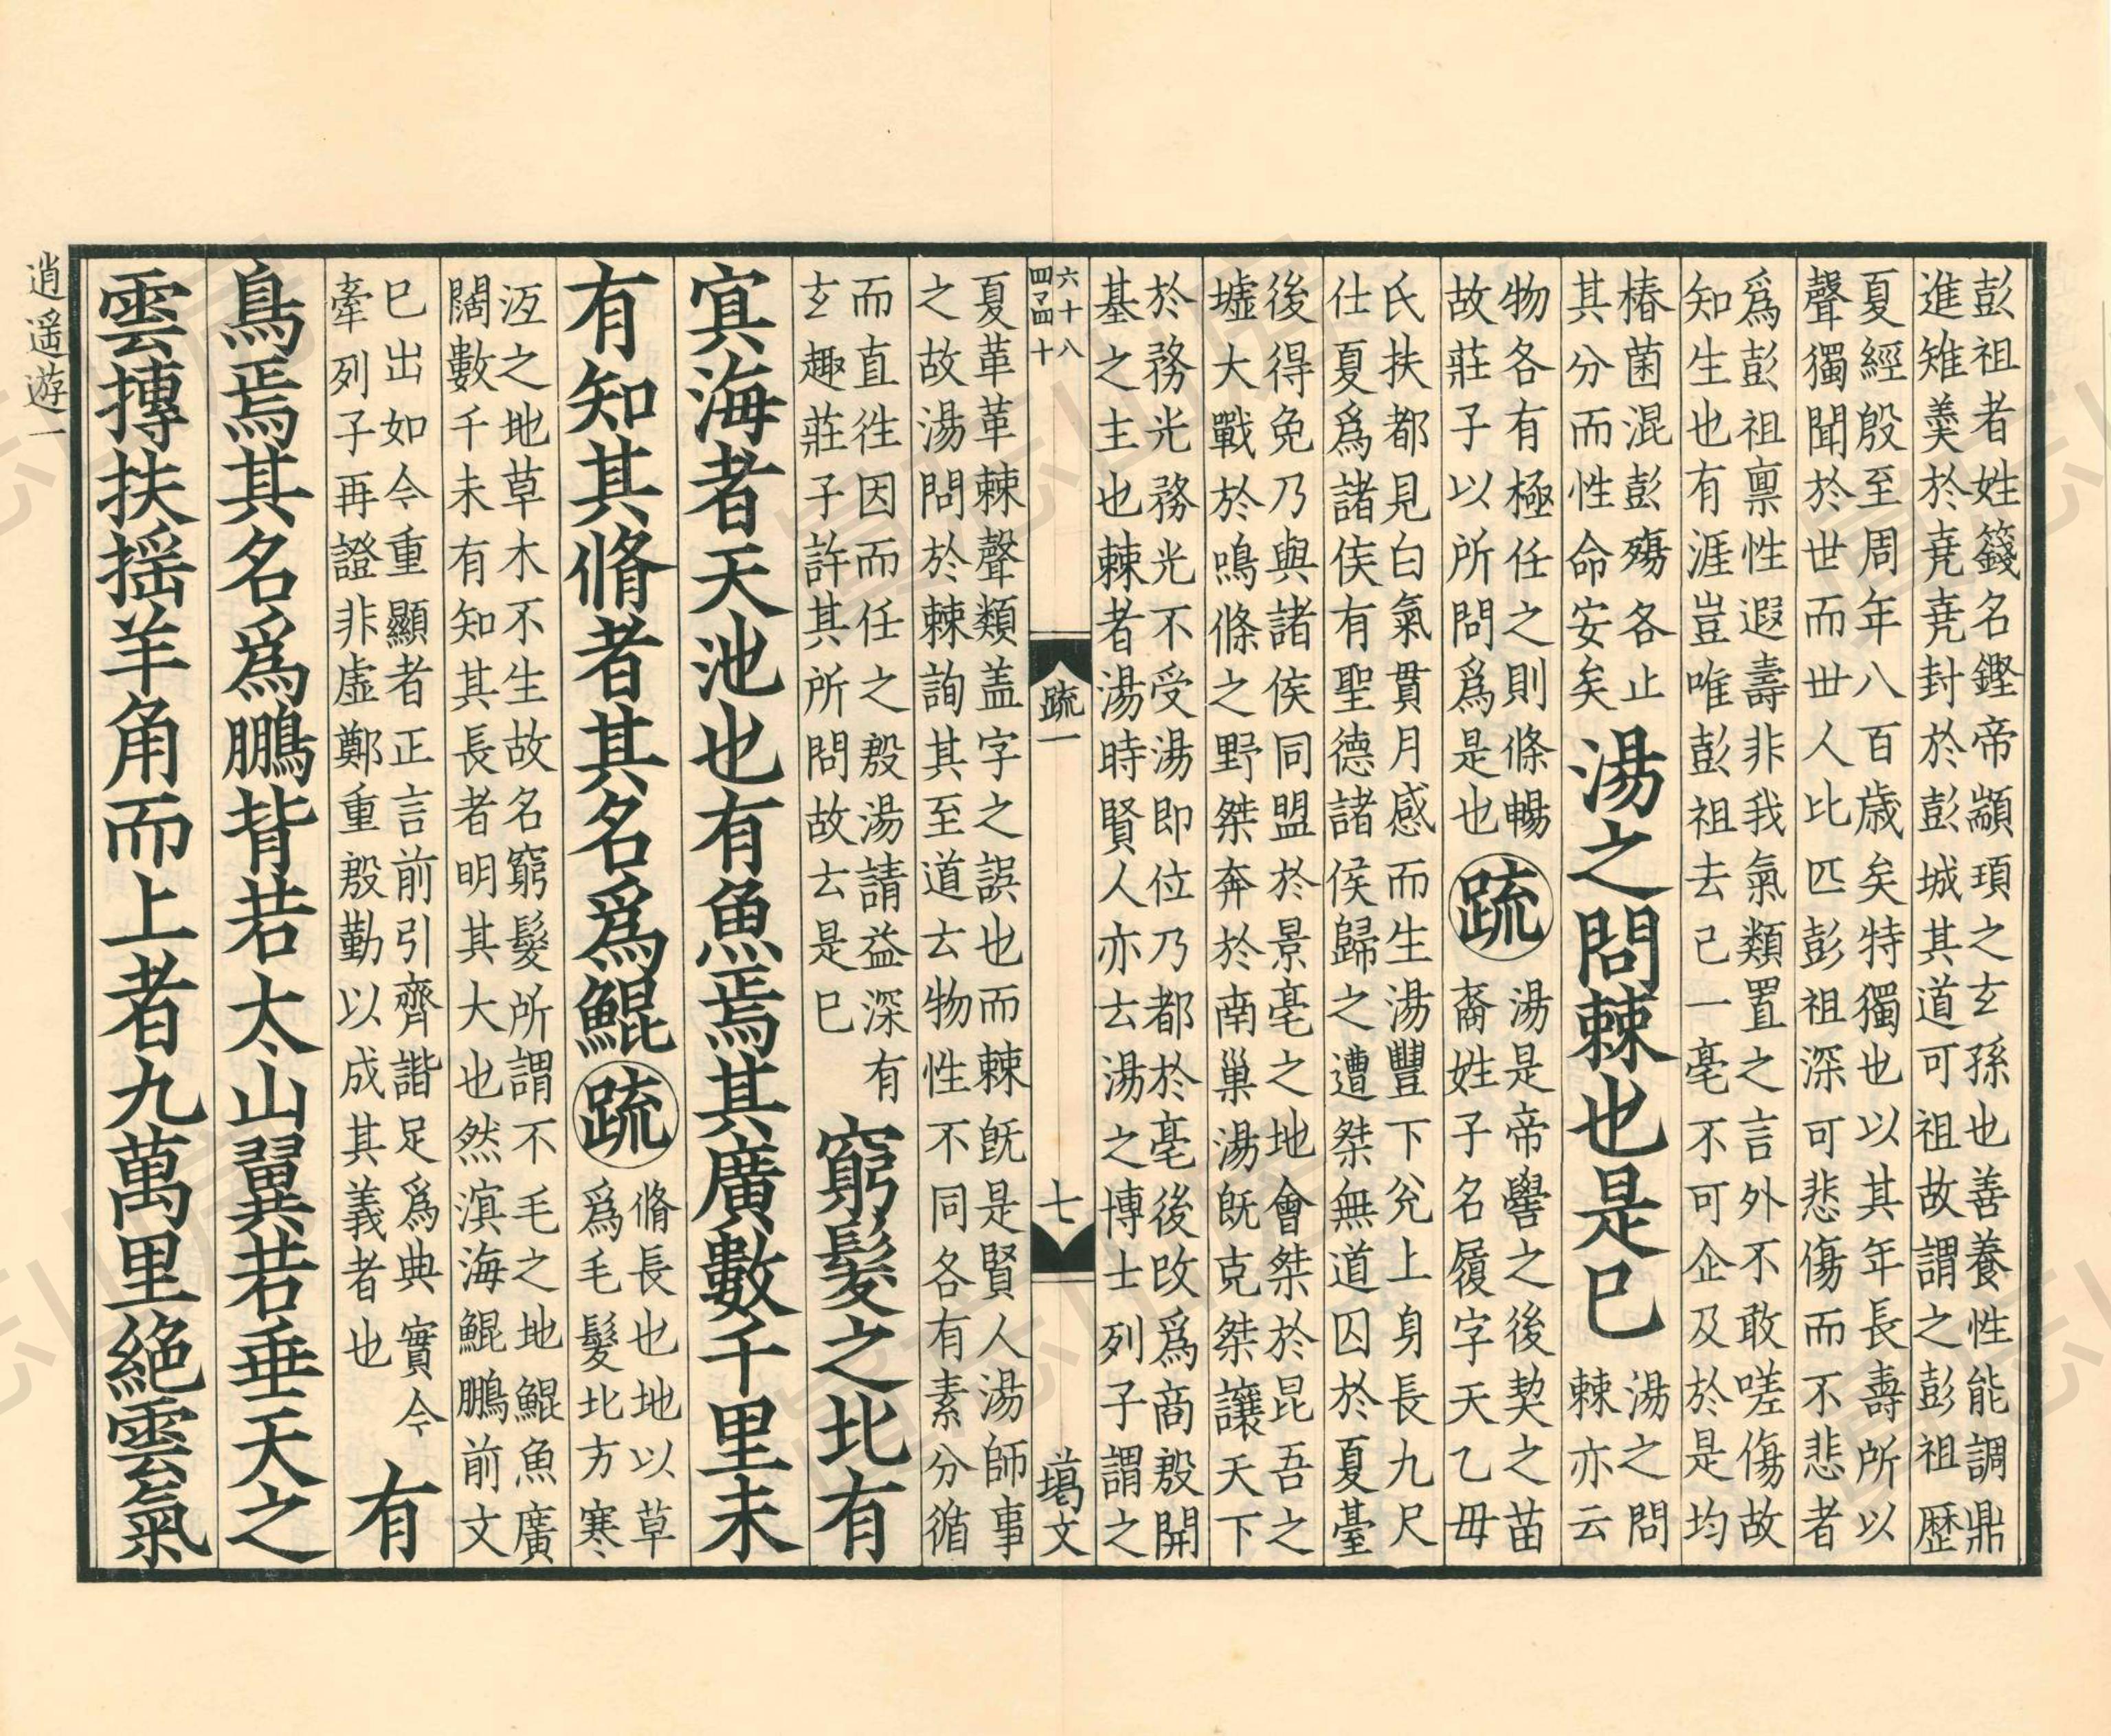 彭祖者姓籛名鏗帝顓頊之玄孫也善養性能調鼎
進雉羹於堯堯封於彭城其道可祖故謂之彭祖歷
夏經殷至周年八百歲矣特獨也以其年長壽所以
聲獨聞於世而世人比匹彭祖深可悲傷而不悲者
爲彭祖禀性遐壽非我氣類置之言外不敢嗟傷故
知生也有涯豈唯彭祖去己一毫不可企及於是均
椿菌混彭殤各止
其分而性命安矣
湯之問棘也是巳
湯之問
棘亦云
物各有極任之則條暢
故莊子以所問爲是也
疏
湯是帝嚳之後契之苗
裔姓子名履字天乙毋
氏扶都見白氣貫月感而生湯豐下兊上身長九尺
仕夏爲諸侯有聖德諸侯歸之遭桀無道囚於夏臺
後得免乃與諸侯同盟於景亳之地會桀於昆吾之
墟大戰於鳴條之野桀奔於南巢湯旣克桀讓天下
於務光務光不受湯即位乃都於亳後改爲商殷開
基之主也棘者湯時賢人亦云湯之博士列子謂之
六十八
四五四十
疏一
七
葛文
夏革革棘聲類盖字之誤也而棘旣是賢人湯師事
之故湯問於棘詢其至道云物性不同各有素分循
而直徃因而任之殷湯請益深有
玄趣莊子許其所問故云是巳
窮髮之北有
冥海者天池也有魚焉其廣數千里未
有知其脩者其名爲鯤
疏
脩長也地以草
爲毛髮北方寒
沍之地草木不生故名窮髮所謂不毛之地鯤魚廣
闊數千未有知其長者明其大也然溟海鯤鵬前文
巳出如今重顯者正言前引齊諧足爲典實今
牽列子再證非虛鄭重殷勤以成其義者也
有
鳥焉其名爲鵬背若太山翼若垂天之
雲摶扶摇羊角而上者九萬里絕雲氣
逍遥遊一